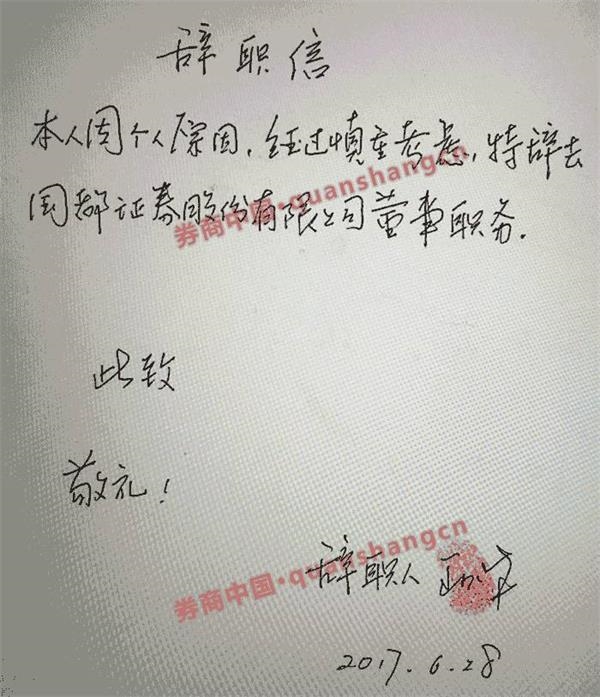 辞职信
本人因个人原因，经过慎重考虑，特辞去
国都证券股份有限公司董事职务．
券商中国·quanshangcn
此致
敬礼！
辞职人
券商中国·quanshangcn
2017.6.28